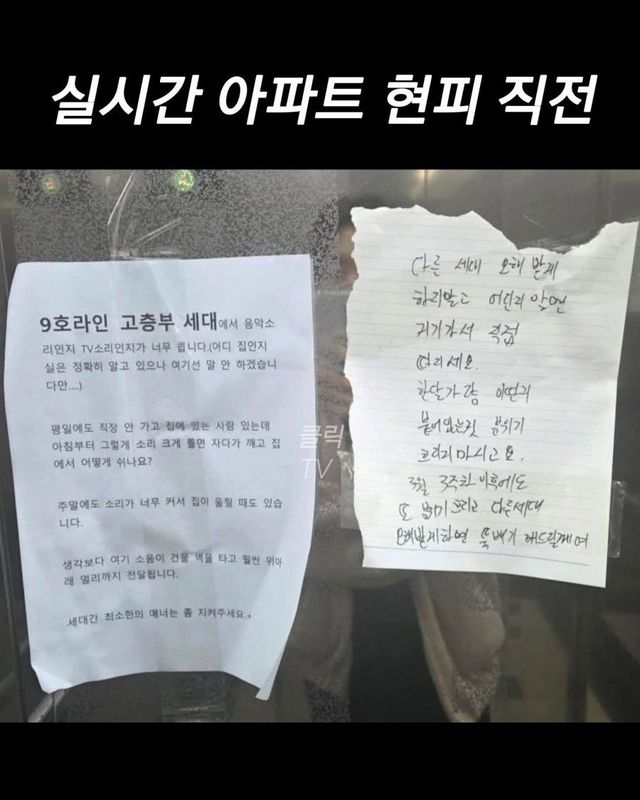 실시간 아파트 현피 직전
9호라인 고층부 세대에서 음악소
리인지 TV소리인지가 너무 큽니다.(어디 집인지
실은 정확히 알고 있으나 여기선 말 안 하겠습니
다만....)
평일에도 직장 안 가고 집에 있는 사람 있는데
아침부터 그렇게 소리 크게 틀면 자다가 깨고 집
에서 어떻게 쉬나요?
주말에도 소리가 너무 커서 집이 울릴 때도 있습
니다.
생각보다 여기 소음이 건물 벽을 타고 훨씬 위아
래 멀리까지 전달됩니다.
세대간 최소한의 매너는 좀 지켜주세요.
다른 세대 오해 받게
하지말고 어딘지 알면
거기가서 직접
따지세요.
한달가량 이딴거
붙어있는것 분위기
흐리지마시고요.
3월 3주차 이후에도
또 분위기 흐리고 다른세대
오해받게하면 뚝배기 깨드릴께여
클릭
TV